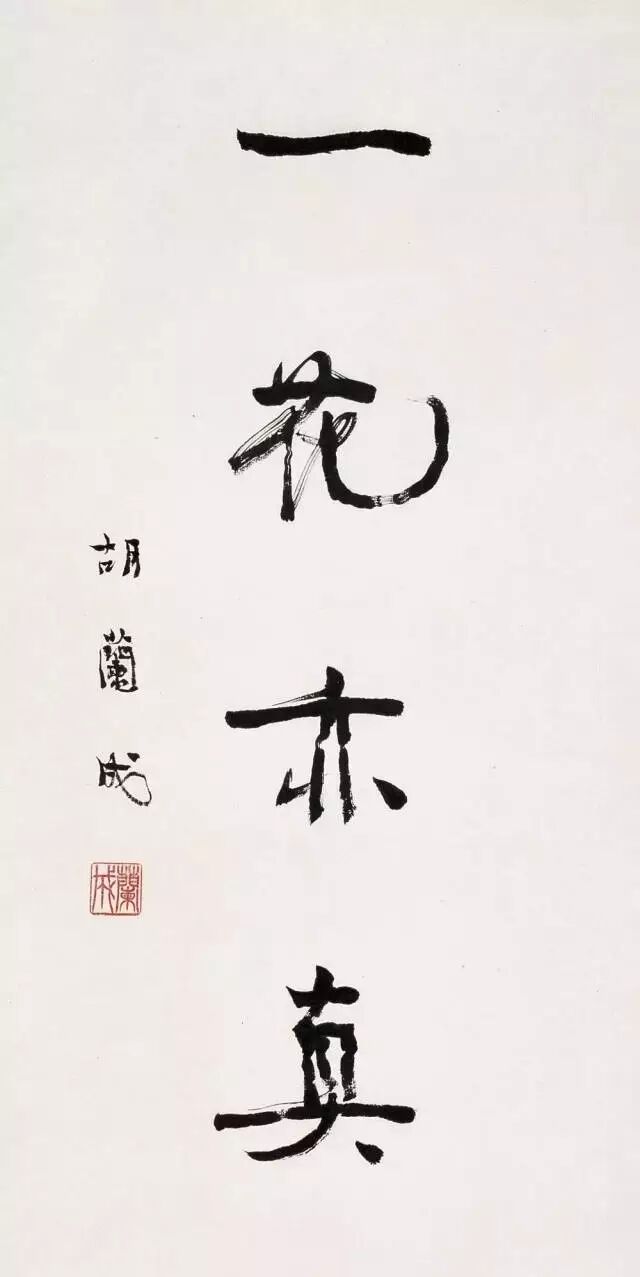 一花亦真
胡蘭成
蘭成